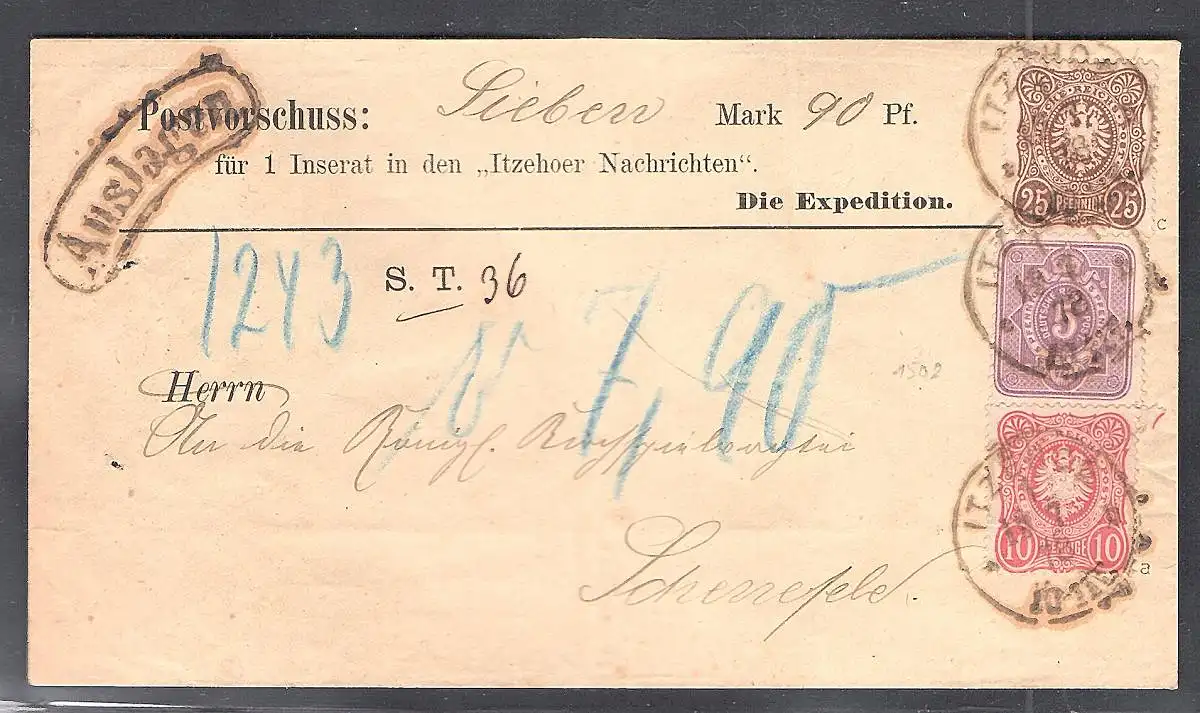 Auslagen
Postvorschuss: Sieben Mark 90 Pf.
für 1 Inserat in den „Itzehoer Nachrichten“.
Die Expedition.
1243
S. T. 36
7,90
1502
Herrn
An die Königl. Kirchspielvogtei
Schenefeld.
25 PFENNIGE 25
c
5
10 PFENNIGE 10
a